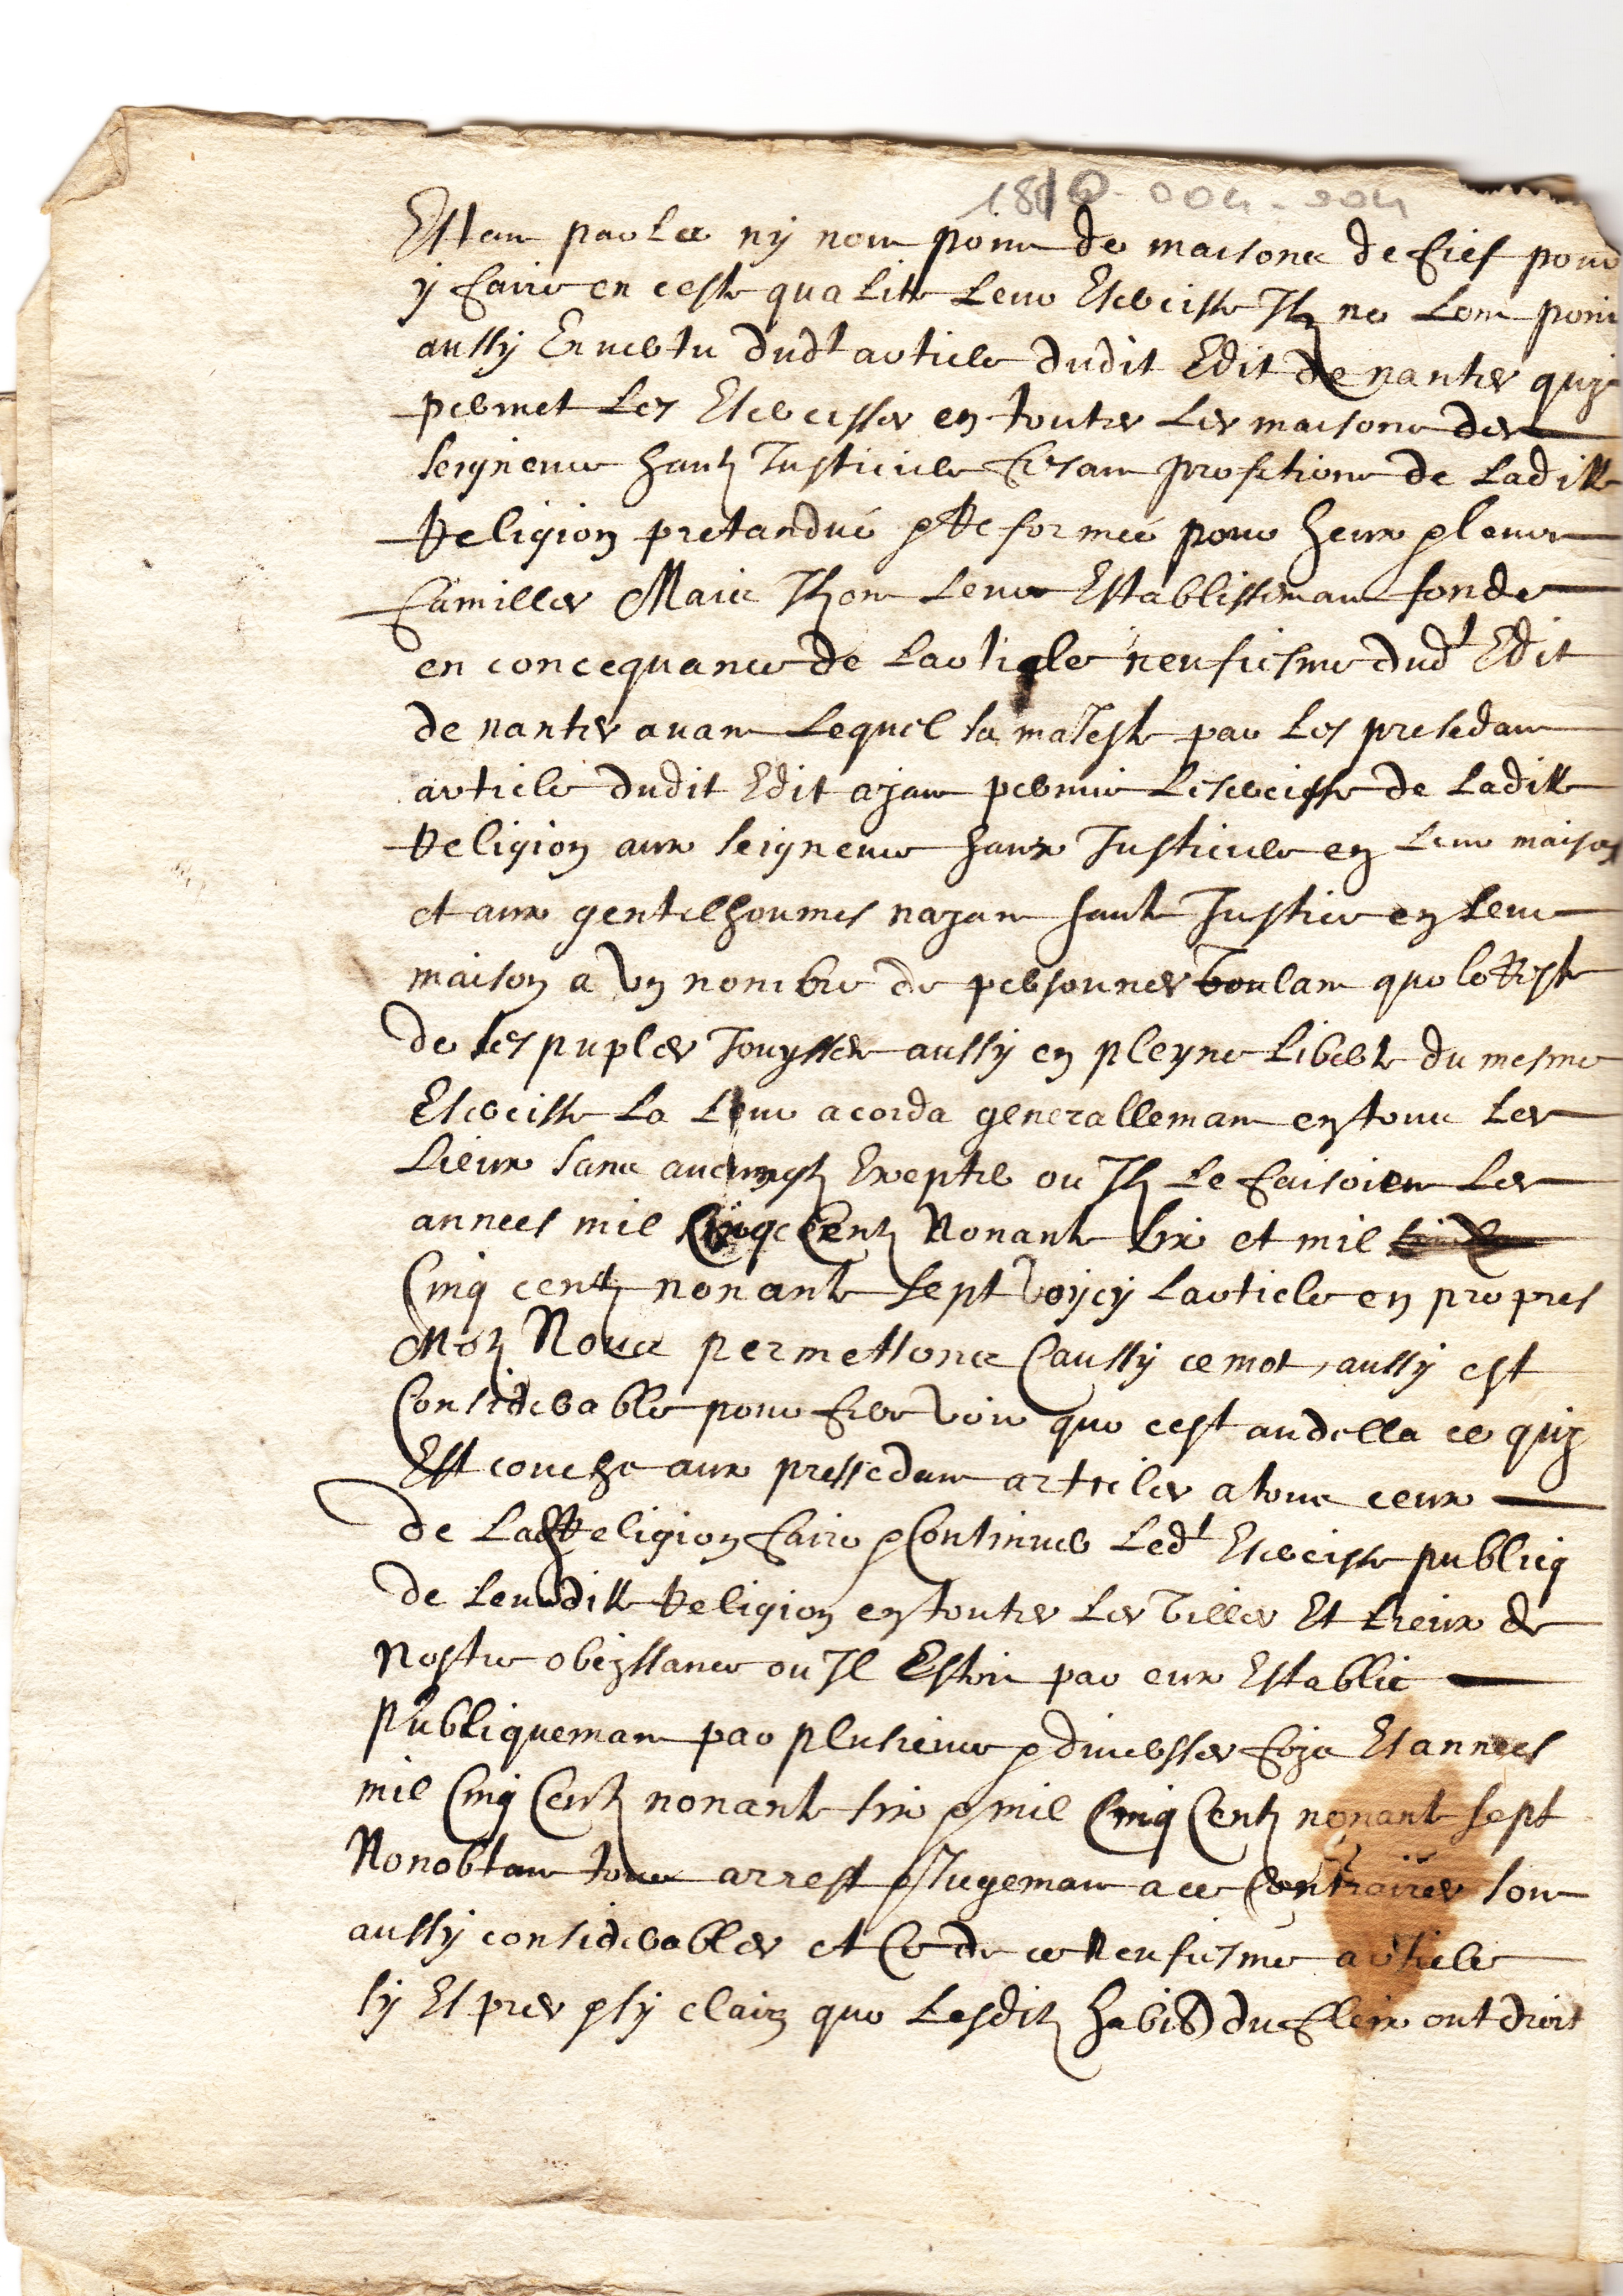 1810-004-004
Estant par la ny nont point de maisons de fief pour
y faire en ceste qualitte leur Exercisse Ilz ne lont point
aussy En vertu dudt article dudit Edit de nantes quy
permet les Exercisses en toutes les maisons des
seigneurs hautz Justiciers fesant profetions de Laditte
Religion pretandue & Reformee pour heux & leurs
familles Mais Ilz ont leur Establissemant fonde
en concequance de Larticle neufiesme dudt Edit
de nantes avant Lequel sa majeste par les presedant
article dudit Edit ajant permis Lesercisse de Laditte
Religion aux seigneurs haux Justiciers en leur maison
et aux gentilhoumes najant haute Justice en leur
maison a un nombre de personnes voulant que le Reste
de ses puples Jouysse aussy en pleyne Liberte du mesme
Exercisse La leur acorda generallemant en tous les
Lieux sans aucung Excepter ou Ilz le faisoient Les
annees mil Cinqc Centz Nonante six et mil
Cinq centz nonante sept voycy Larticle en propres
Motz Nous permettons (aussy ce mot, aussy est
Considerable pour fere voir que cest audella ce quy
Est couche aux pressedant articles a tous ceux
de Lad Religion faire & Continuer Ledt Exercisse publicq
de leurditte Religion en toutes les villes Et Lieux de
Nostre obeyssance ou Il Estoit par eux Establie
Publiquemant par plusieurs & diversses fojs Es annees
mil Cinq Centz nonante six & mil Cinq Centz nonante sept
Nonobtant tous arrest & Jugemant a ce Contraires sont
aussy considerables et Ce de ce Neufiesme article
sy Espres & sy clair que Lesditz habit) du fleix ont droit